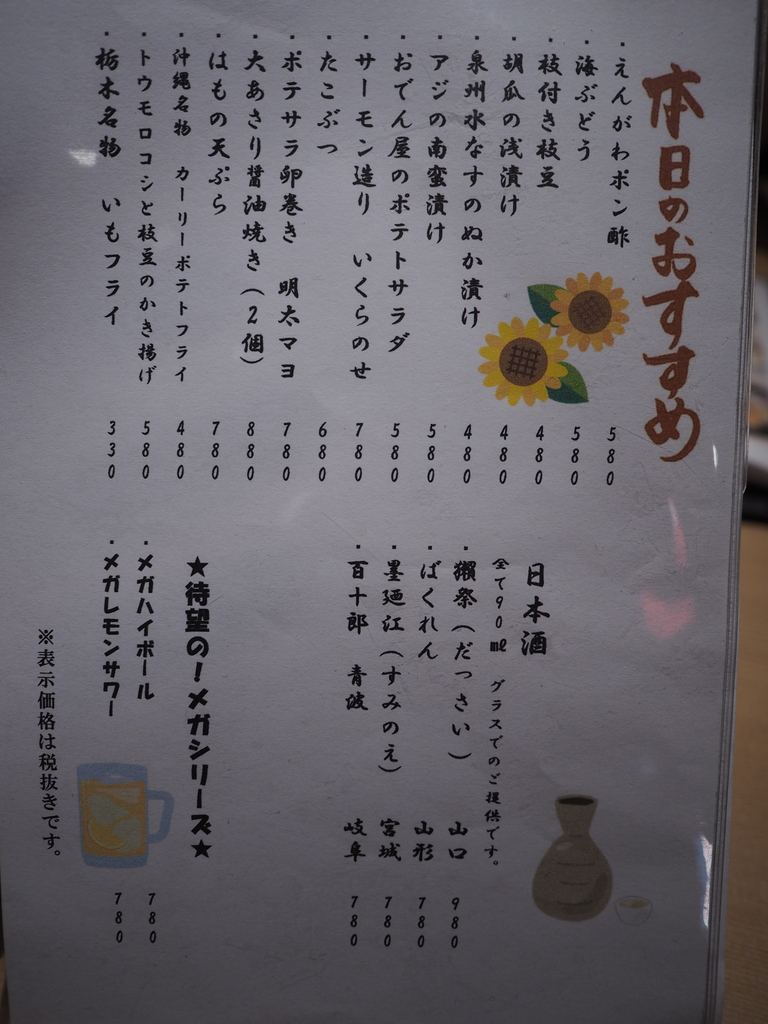 本日のおすすめ
・えんがわポン酢 580
・海ぶどう 580
・枝付き枝豆 480
・胡瓜の浅漬け 480
・泉州水なすのぬか漬け 480
・アジの南蛮漬け 580
・おでん屋のポテトサラダ 580
・サーモン造り いくらのせ 780
・たこぶつ 680
・ポテサラ卵巻き 明太マヨ 780
・大あさり醤油焼き(2個) 880
・はもの天ぷら 780
・沖縄名物 カーリーポテトフライ 480
・トウモロコシと枝豆のかき揚げ 580
・栃木名物 いもフライ 330
日本酒
全て90㎖ グラスでのご提供です。
・獺祭(だっさい) 山口 980
・ばくれん 山形 780
・墨廼江(すみのえ) 宮城 780
・百十郎 青波 岐阜 780
★待望の!メガシリーズ★
・メガハイボール 780
・メガレモンサワー 780
※表示価格は税抜きです。